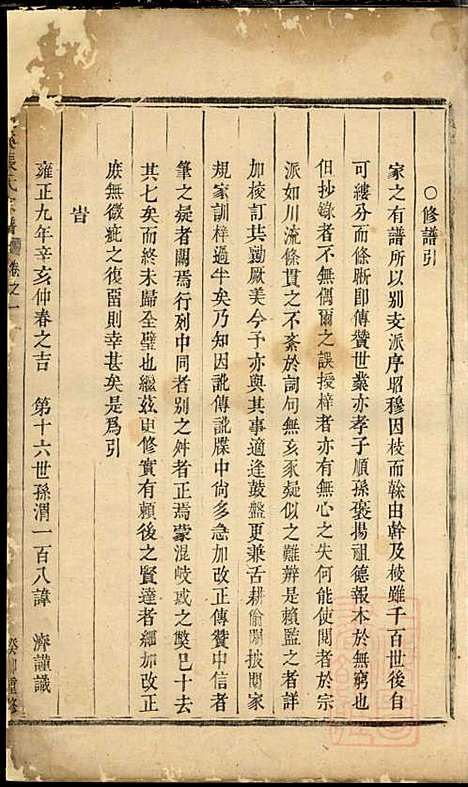 ○修譜引
家之有譜所以别支派序昭穆因枝而榦由幹及枝雖千百世後自
可縷分而條晰即傳贊世業亦孝子順孫褒揚祖德報本於無窮也
但抄錄者不無偶爾之誤授梓者亦有無心之失何能使閱者於宗
派如川流條貫之不紊於詞句無亥豕疑似之難辨是賴監之者詳
加校訂共勷厥美今予亦與其事適逢鼓盤更兼舌耕偷閒披閱家
規家訓梓過半矣乃知因訛傳訛牒中尙多急加改正傳贊中信者
筆之疑者闕焉行列中同者别之舛者正焉蒙混岐彧之獘已十去
其七矣而終未歸全璧也繼兹更修實有賴後之賢達者細加改正
庶無微疵之復畱則幸甚矣是爲引
旹
雍正九年辛亥仲春之吉　第十六世孫渭一百八諱　濟謹識
張氏宗譜　卷之一
重修